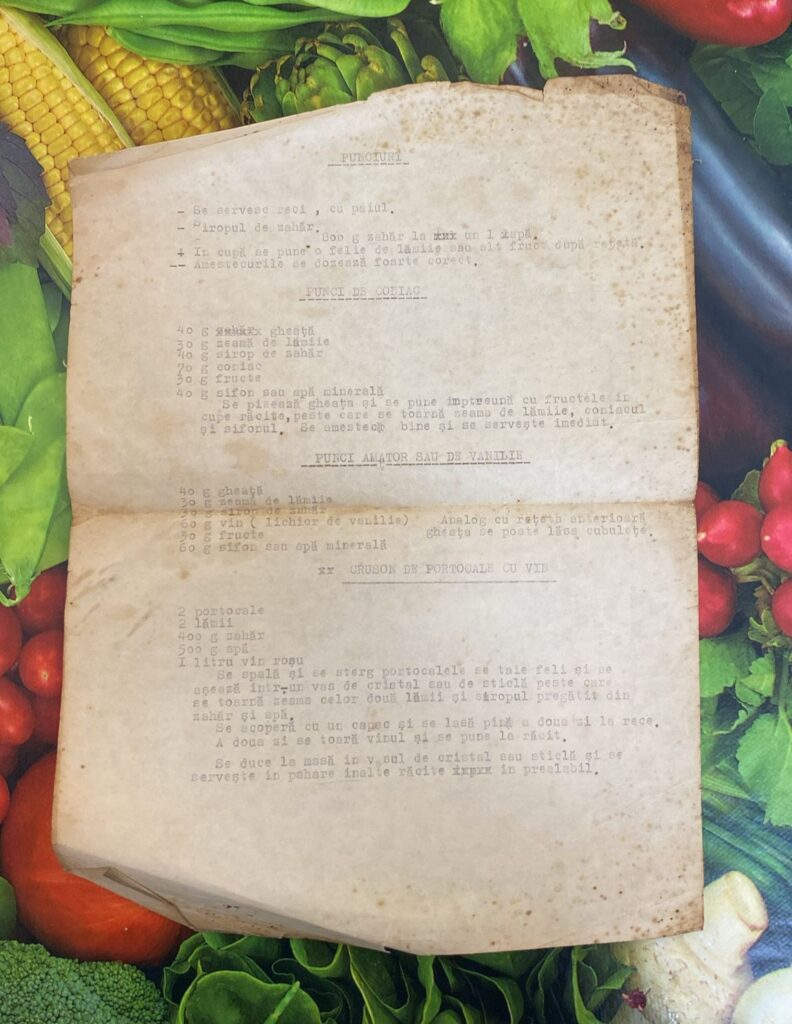 PUNCIURI
- Se servesc reci , cu paiul.
- Siropul de zahăr.
- 800 g zahăr la xxx un l xapă.
+ In cupă se pune o felie de lămîie sau alt fruct după rețetă.
-- Amestecurile se dozează foarte corect.
PUNCI DE CONIAC
40 g xxxxxx gheață
30 g zeamă de lămîie
40 g sirop de zahăr
70 g coniac
30 g fructe
40 g sifon sau apă minerală
Se pisează gheața și se pune împreună cu fructele in
cupe răcite,peste care se toarnă zeama de lămîie, coniacul
și sifonul. Se amestecă bine și se servește imediat.
PUNCI AMATOR SAU DE VANILIE
40 g gheață
30 g zeamă de lămîie
30 g sirop de zahăr
60 g vin ( lichior de vanilie) Analog cu rețeta anterioară
30 g fructe gheața se poate lăsa cubulețe.
60 g sifon sau apă minerală
xx CRUSON DE PORTOCALE CU VIN
2 portocale
2 lămîi
400 g zahăr
500 g apă
I litru vin roșu
Se spală și se sterg portocalele se taie feli și se
așează intr-un vas de cristal sau de sticlă peste care
se toarnă zeama celor două lămîi și siropul pregătit din
zahăr și apă.
Se acoperă cu un capac și se lasă pînă a doua zi la rece.
A doua zi se toară vinul și se pune la răcit.
Se duce la masă in vasul de cristal sau sticlă și se
servește in pahare inalte răcite xxpxx in prealabil.